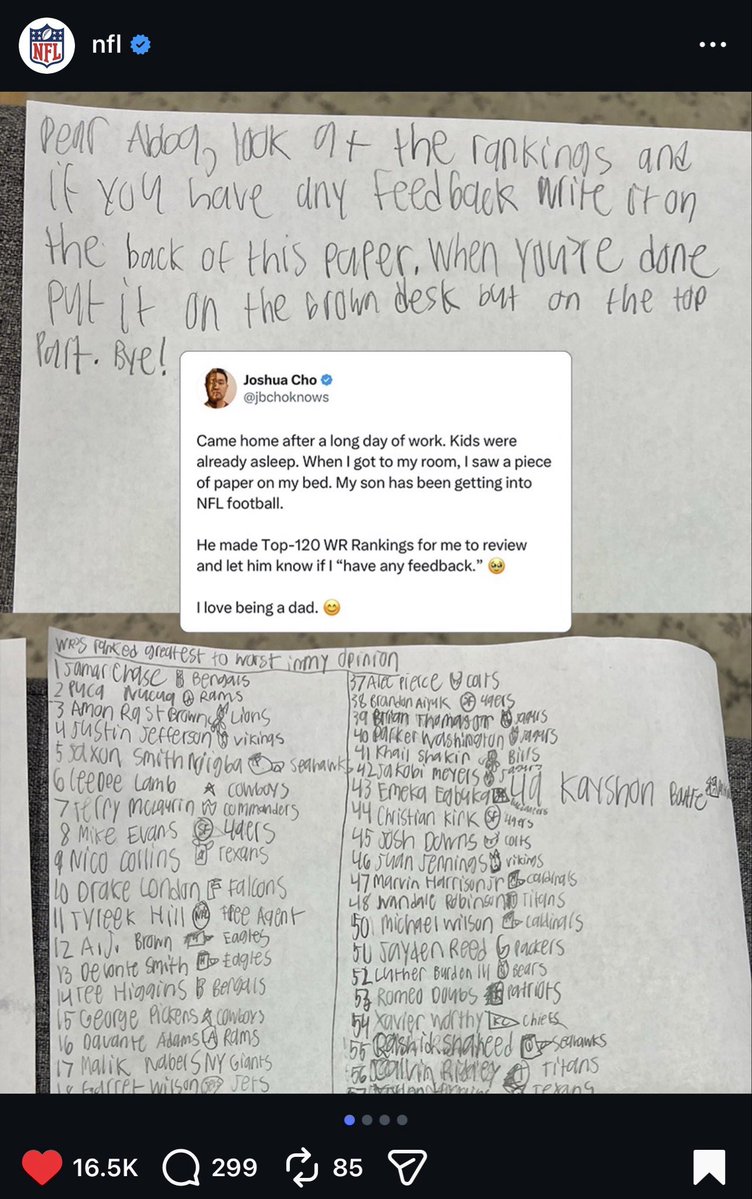 nfl
Dear Abdog, look at the rankings and
if you have any feedback write it on
the back of this paper. When you're done
put it on the brown desk but on the top
Part. Bye!
Joshua Cho
@jbchoknows
Came home after a long day of work. Kids were
already asleep. When I got to my room, I saw a piece
of paper on my bed. My son has been getting into
NFL football.
He made Top-120 WR Rankings for me to review
and let him know if I “have any feedback.” 🥹
I love being a dad. 😊
WRS ranked greatest to worst in my opinion
1 Jamar Chase Bengals
2 Puca Nucua Rams
3 Amon Ra St Brown Lions
4 Justin Jefferson vikings
5 Jaxon Smith Njigba seahawks
6 CeeDee Lamb cowboys
7 Terry Mclaurin commanders
8 Mike Evans 49ers
9 Nico Collins Texans
10 Drake London Falcons
11 Tyreek Hill Free Agent
12 A.J. Brown Eagles
13 Devonte Smith Eagles
14 Tee Higgins Bengals
15 George Pickens cowboys
16 Davante Adams Rams
17 Malik Nabers NY Giants
18 Garret Wilson Jets
37 Alec pierce colts
38 Brandon Aiyuk 49ers
39 Brian Thomas Jr Jaguars
40 Parker Washington Jaguars
41 Khail Shakir Bills
42 Jakobi Meyers
43 Emeka Egbuka
49 Kayshon
44 Christian Kirk 49ers
45 Josh Downs colts
46 Juan Jennings vikings
47 Marvin Harrison Jr caldinals
48 Wandale Robinson Titans
50 Michael Wilson caldinals
51 Jayden Reed Packers
52 Luther Burden III Bears
53 Romeo Doubs Patriots
54 Xavier worthy KC Chiefs
55 Rashid shaheed seahawks
56 Calvin Ridley Titans
57 Texans
16.5K 299 85